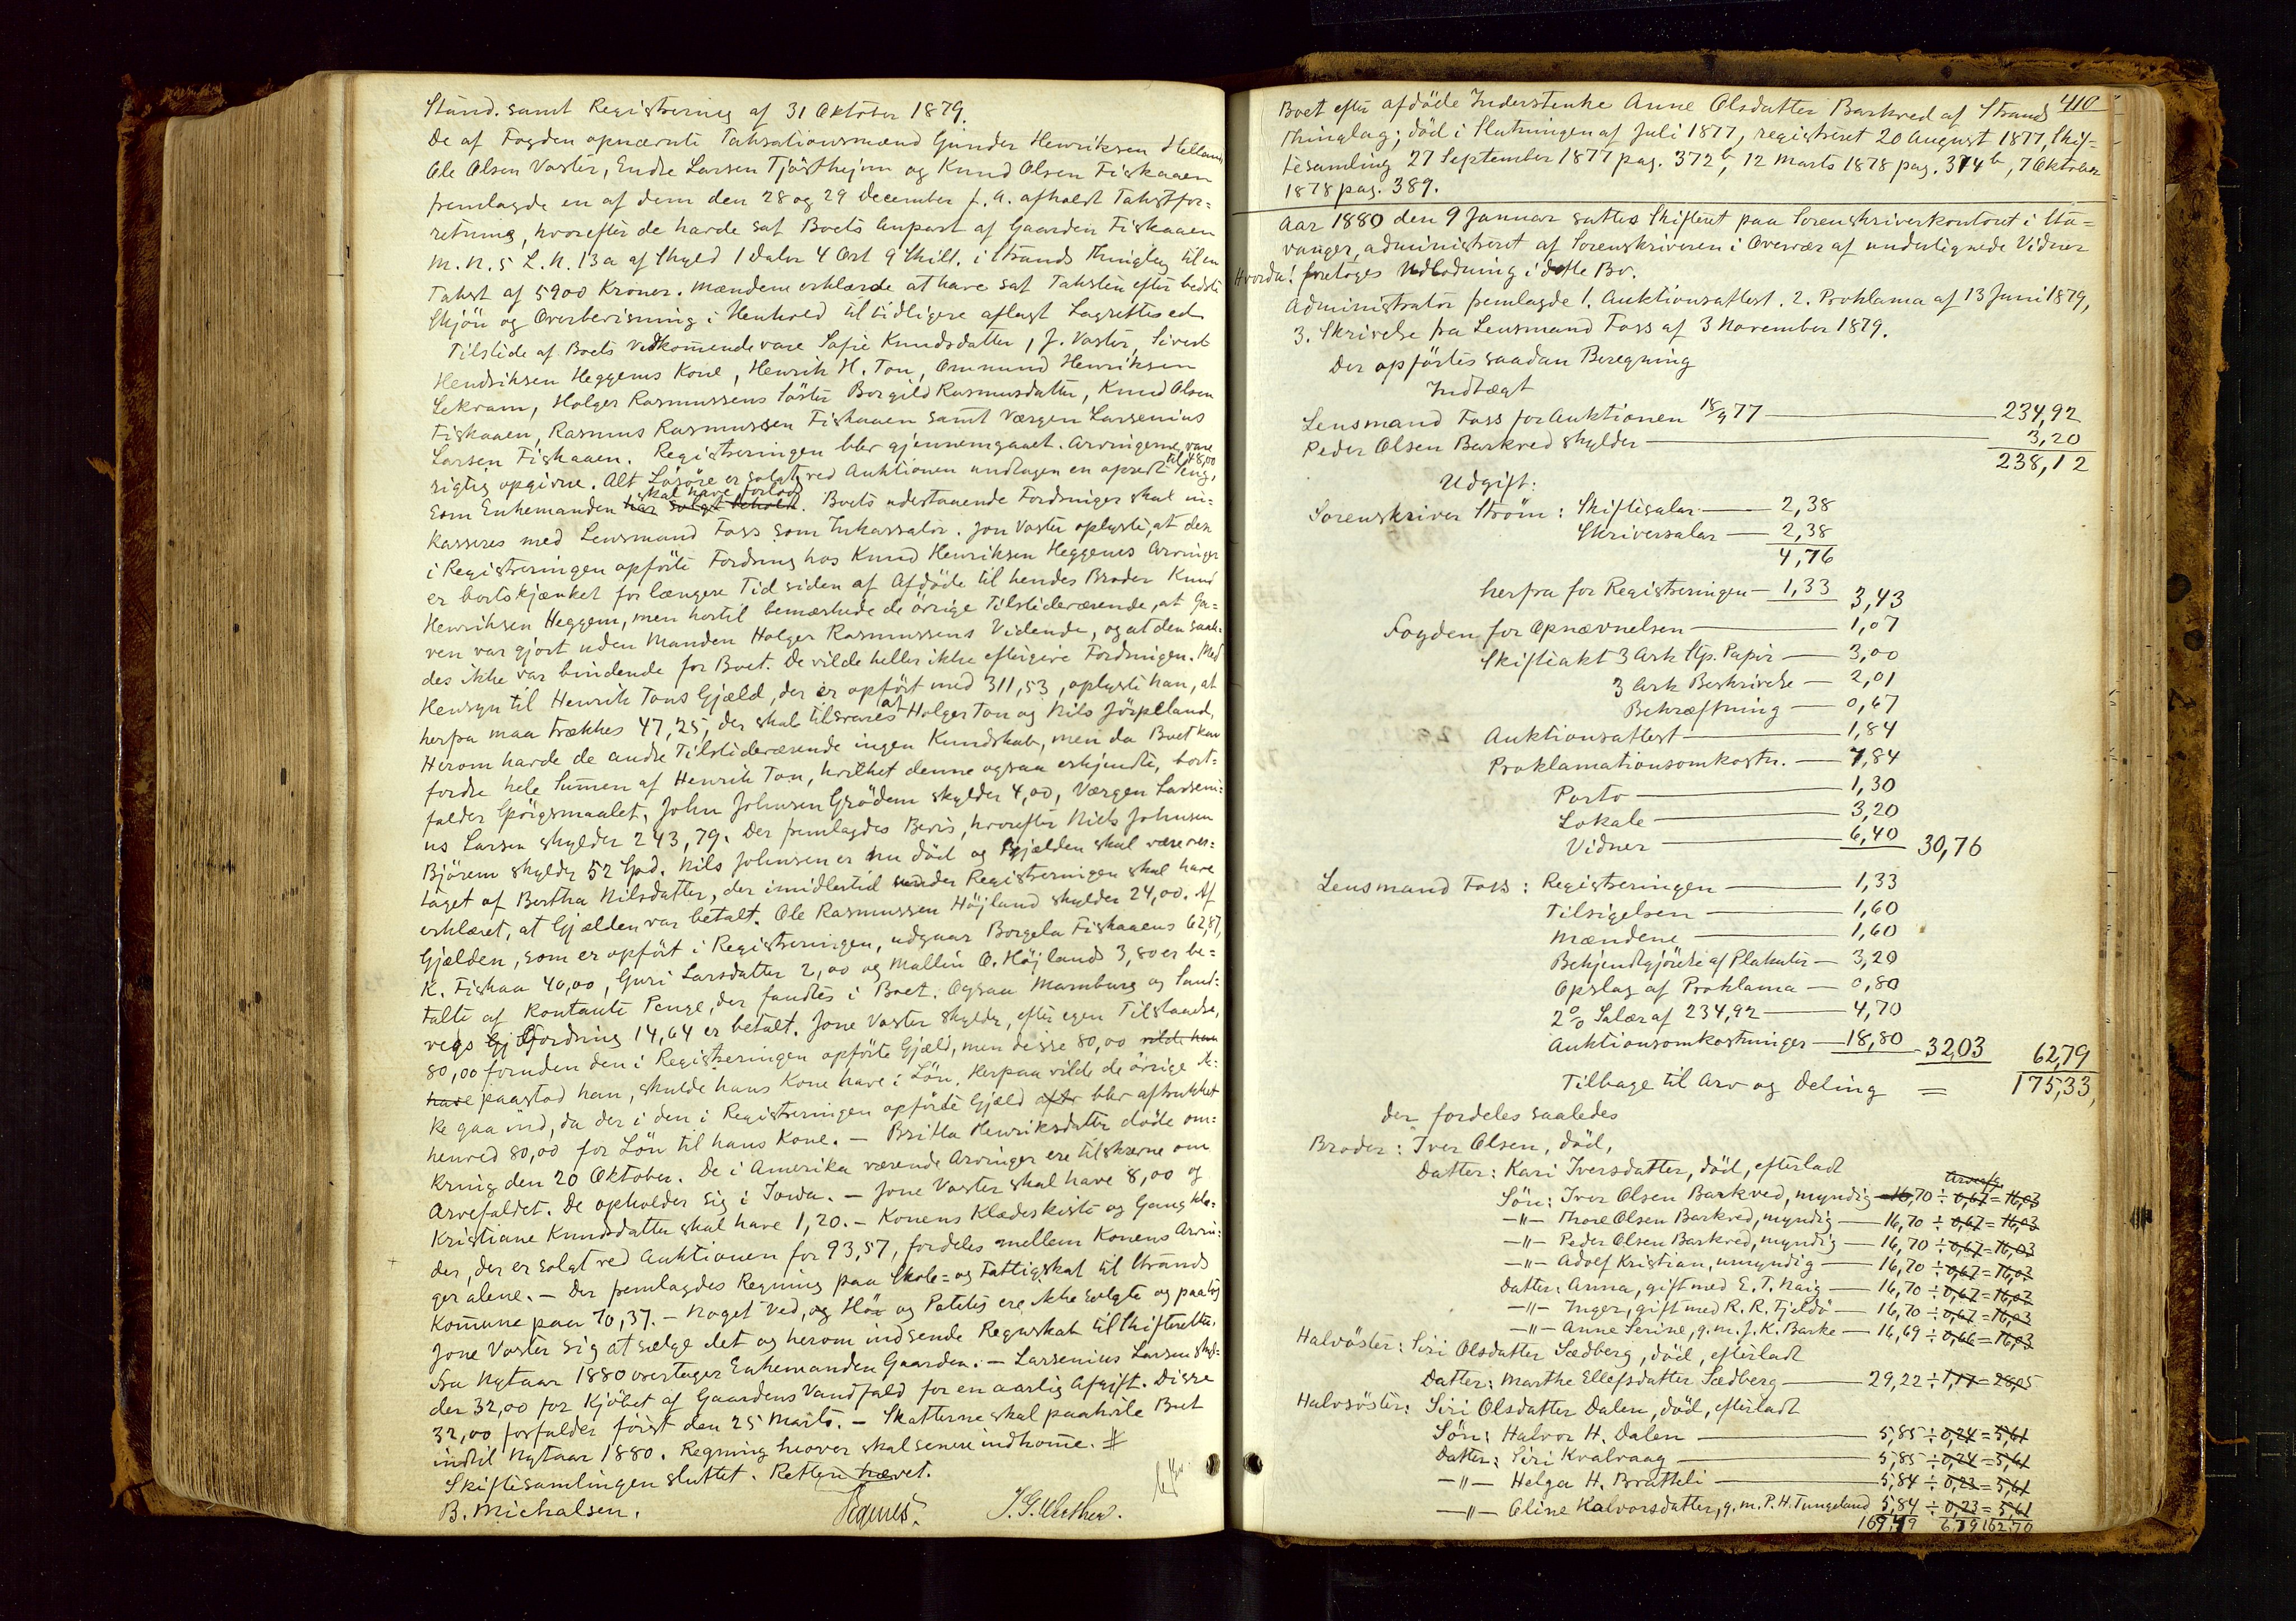 Stand. samt Registrering af 31 Oktober 1879.
De af Fogden opnævnte Taksationsmænd Gunder Henriksen Helland
Ole Olsen Vaster, Endre Larsen Tjöstheim og Knud Olsen Fiskaaen
fremlagde en af dem den 28 og 29 December f. A. afholdt Takstfor=
retning, hvorefter de havde sat Boets Anpart af Gaarden Fiskaaen
M. N. 5 L. N. 13a af Skyld 1 Daler 4 Ort 9 Skill. i Strands Thinglag til en
Takst af 5900 Kroner. Mændene erklærede at have sat Taksten efter bedste
Skjön og Overbevisning i Henhold til tidligere aflagt Lagrettesed
Tilstede af Boets Vedkommende vare Sofie Knudsdatter, J. Vaster, Sivert
Hendriksen Heggems Kone, Henrik H. Tou, Ommund Henriksen
Lekvam, Holger Rasmussens Söster Borgild Rasmusdatter, Knud Olsen
Fiskaaen, Rasmus Rasmussen Fiskaaen samt Værgen Larsenius
Larsen Fiskaaen. Registreringen blev gjennemgaaet. Arvingerne vare
rigtig opgivne. Alt Lösöre er solgt ved Auktionen undtagen en opredt Seng, til 48,00
som Enkemanden har solgt beholdt skal have forlods. Boets udestaaende Fordringer skal in=
kasseres med Lensmand Foss som Inkassator. Jon Vaster oplyste, at den
i Registreringen opförte Fordring hos Knud Henriksen Heggems Arvinger
er bortskjænket for længere Tid siden af Afdöde til hendes Broder Knud
Henriksen Heggem, men hertil bemærkede de övrige Tilstedeværende, at Ga=
ven var gjort uden Manden Holger Rasmussens Vidende, og at den saale=
des ikke var bindende for Boet. De vilde heller ikke eftergive Fordringen. Med
Hensyn til Henrik Tous Gjæld, der er opfört med 311,53, oplyste han, at
herfra maa trækkes 47,25, der skal tilsvares af Holger Tou og Nils Jörpeland,
Herom havde de andre Tilstedeværende ingen Kundskab, men da Boet kan
fordre hele Summen af Henrik Tou, hvilket denne ogsaa erkjendte, bort=
falder Spörgsmaalet. John Johnsen Grödem skylder 4,00, Værgen Larseni=
us Larsen skylder 243,79. Der fremlagdes Bevis, hvorefter Niels Johnsen
Björem skyldes 52 Spd. Nils Johnsen er nu död og Gjælden skal være over=
taget af Bertha Nilsdatter, der imidlertid under Registreringen skal have
erklæret, at Gjælden var betalt. Ole Rasmussen Höjland skylder 24,00. Af
Gjælden, som er opfört i Registreringen, udgaar Borgela Fiskaaens 62,87,
K. Fiskaa 40,00, Guri Larsdatter 2,00 og Mallin O. Höjlands 3,80 er be=
talte af kontante Penge, der fandtes i Boet. Ogsaa Marnburg og Sund=
vegs Fordring 14,64 er betalt. Jone Vaster skylder, efter egen Tilstaaelse,
80,00 foruden den i Registreringen opförte Gjæld, men disse 80,00 vilde han
have paastod han, skulde hans Kone have i Lön. Herpaa vilde de övrige ik=
ke gaa ind, da der i den i Registreringen opförte Gjæld blev aftrukket
henved 80,00 for Lön til hans Kone. — Britta Henriksdatter döde om=
kring den 20 Oktober. De i Amerika værende Arvinger ere tilskrevne om
Arvefaldet. De opholder sig i Iowa. — Jone Vaster skal have 8,00 og
Kristiane Knudsdatter skal have 1,20. — Konens Klædeskiste og Gang klæ=
der, der er solgt ved Auktionen for 93,57, fordeles mellem Konens Arvin=
ger alene. — Der fremlagdes Regning paa Skole= og Fattigskat til Strands
Kommune paa 70,37. — Noget Ved, og Hö og Potetes ere ikke solgte og paatog
Jone Vaster sig at sælge det og herom indsende Regnskab til Skifteretten.
Fra Nytaar 1880 overtager Enkemanden Gaarden. — Larsenius Larsen skyl=
der 32,00 for Kjöbet af Gaardens Vandfald for en aarlig Afgift. Disse
32,00 forfalder först den 25 Marts. — Skatterne skal paahvile Boet
indtil Nytaar 1880. Regning herover skal senere indkomme. #
Skiftesamlingen sluttet. Retten hævet.
B. Michalsen.
410
Boet efter afdöde Inderstenke Anne Olsdatter Barkved af Strands
Thinglag; död i Slutningen af Juli 1877, registreret 20 August 1877, Skif=
tesamling 27 September 1877 pag. 372b, 12 Marts 1878 pag. 374b, 7 Oktober
1878 pag. 389.
Aar 1880 den 9 Januar sattes Skifteret paa Sorenskriverkontoret i Sta=
vanger, administreret af Sorenskriveren i Overvær af undertegnede Vidner
Hvorda: foretoges Udlodning i dette Bo.
Administrator fremlagde 1. Auktionsattest. 2. Proklama af 13 Juni 1879,
3. Skrivelse fra Lensmand Foss af 3 November 1879.
Der opförtes saadan Beregning
Indtægt
Lensmand Foss for Auktionen 18/9 77 — 234,92
Peder Olsen Barkved skylder — 3,20
238,12
Udgift:
Sorenskriver Ström: Skiftesalar — 2,38
Skriversalar — 2,38
4,76
herfra for Registreringen — 1,33 3,43
Fogden for Opnævnelsen — 1,07
Skifteakt 3 Ark Stp. Papir — 3,00
3 Ark Beskrivelse — 2,01
Bekræftning — 0,67
Auktionsattest — 1,84
Proklamationsomkostn. — 7,84
Porto — 1,30
Lokale — 3,20
Vidner — 6,40 30,76
Lensmand Foss: Registreringen — 1,33
Tilsigelsen — 1,60
Mændene — 1,60
Bekjendtgjörelse af Plakater — 3,20
Opslag af Proklama — 0,80
2% Salær af 234,92 — 4,70
Auktionsomkostninger — 18,80 32,03 62,79
Tilbage til Arv og Deling = 175,33,
der fordeles saaledes
Broder: Iver Olsen, död,
Datter: Kari Iversdatter, död, efterladt
Arveafg.
Sön: Iver Olsen Barkved, myndig — 16,70 ÷ 0,67 = 16,03
—"— Thore Olsen Barkved, myndig — 16,70 ÷ 0,67 = 16,03
—"— Peder Olsen Barkved, myndig — 16,70 ÷ 0,67 = 16,03
—"— Adolf Kristian, umyndig — 16,70 ÷ 0,67 = 16,03
Datter: Anna, gift med E. T. Naig — 16,70 ÷ 0,67 = 16,03
—"— Inger, gift med R. R. Fjeldö — 16,70 ÷ 0,67 = 16,03
—"— Anne Serine, g. m. J. K. Barke — 16,69 ÷ 0,66 = 16,03
Halvsöster: Siri Olsdatter Sædberg, död, efterladt
Datter: Marthe Ellefsdatter Sædberg — 29,22 ÷ 1,17 = 28,05
Halvsöster: Siri Olsdatter Dalen, död, efterladt
Sön: Halvor H. Dalen — 5,85 ÷ 0,24 = 5,61
Datter: Siri Kvalvaag — 5,85 ÷ 0,24 = 5,61
—"— Helga H. Bratteli — 5,84 ÷ 0,23 = 5,61
—"— Oline Halvorsdatter, g. m. P. H. Tungeland 5,84 ÷ 0,23 = 5,61
169,49 6,79 162,70